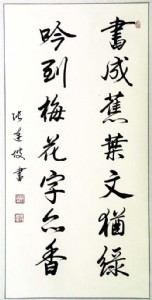 書成蕉葉文猶綠
吟到梅花字亦香
張達坡書